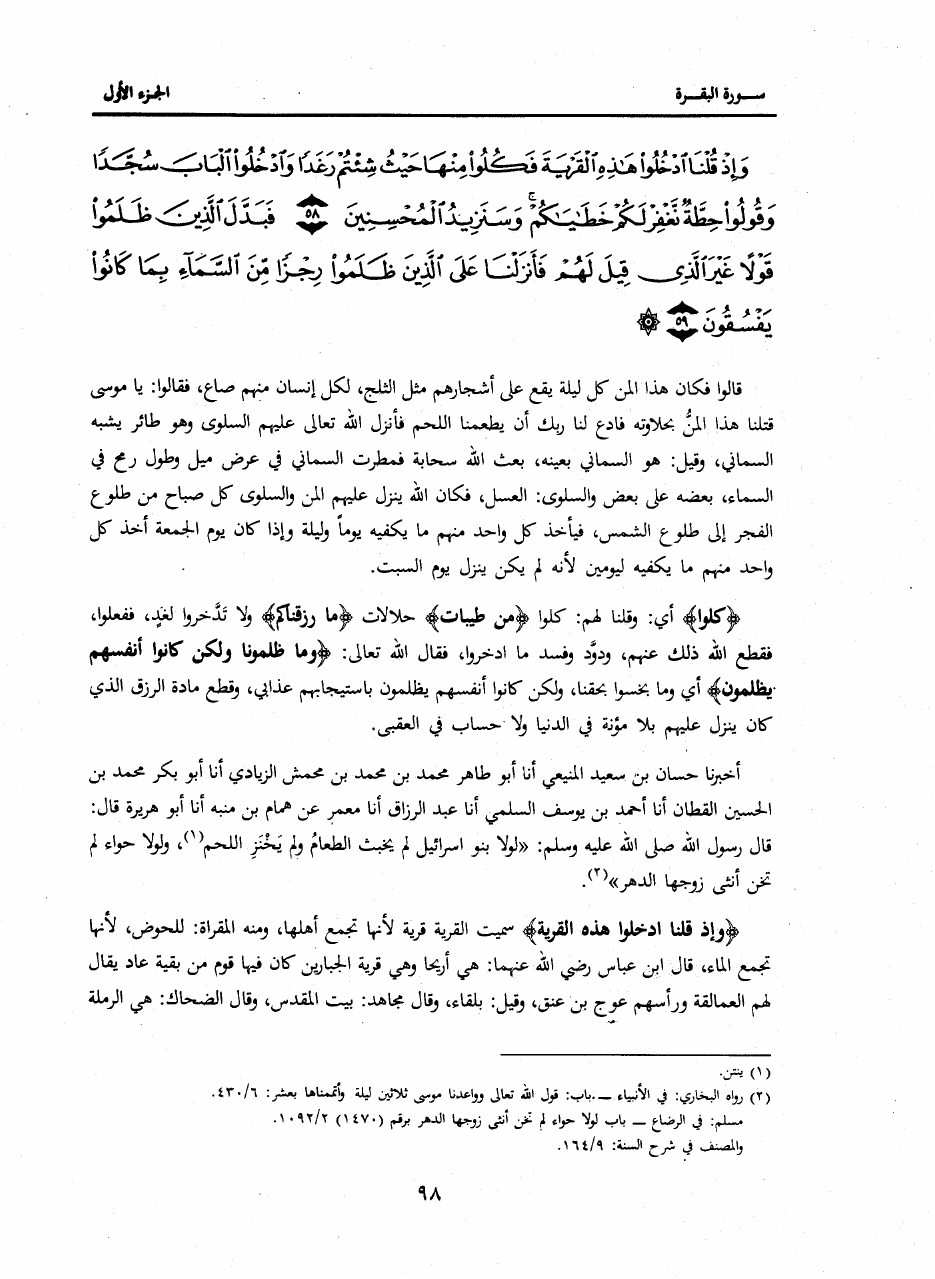 سورة البقرة
الجزء الأول
وَإِذْ قُلْنَا ٱدْخُلُوا۟ هَٰذِهِ ٱلْقَرْيَةَ فَكُلُوا۟ مِنْهَا حَيْثُ شِئْتُمْ رَغَدًا وَٱدْخُلُوا۟ ٱلْبَابَ سُجَّدًا
وَقُولُوا۟ حِطَّةٌ نَّغْفِرْ لَكُمْ خَطَٰيَٰكُمْ ۚ وَسَنَزِيدُ ٱلْمُحْسِنِينَ ٥٨ فَبَدَّلَ ٱلَّذِينَ ظَلَمُوا۟
قَوْلًا غَيْرَ ٱلَّذِى قِيلَ لَهُمْ فَأَنزَلْنَا عَلَى ٱلَّذِينَ ظَلَمُوا۟ رِجْزًا مِّنَ ٱلسَّمَآءِ بِمَا كَانُوا۟
يَفْسُقُونَ ٥٩ ۞
قالوا فكان هذا المن كل ليلة يقع على أشجارهم مثل الثلج، لكل إنسان منهم صاع، فقالوا: يا موسى
قتلنا هذا المنُّ بحلاوته فادع لنا ربك أن يطعمنا اللحم فأنزل الله تعالى عليهم السلوى وهو طائر يشبه
السماني، وقيل: هو السماني بعينه، بعث الله سحابة فمطرت السماني في عرض ميل وطول رمح في
السماء، بعضه على بعض والسلوى: العسل، فكان الله ينزل عليهم المن والسلوى كل صباح من طلوع
الفجر إلى طلوع الشمس، فيأخذ كل واحد منهم ما يكفيه يوماً وليلة وإذا كان يوم الجمعة أخذ كل
واحد منهم ما يكفيه ليومين لأنه لم يكن ينزل يوم السبت.
﴿كلوا﴾ أي: وقلنا لهم: كلوا ﴿من طيبات﴾ حلالات ﴿ما رزقناكم﴾ ولا تَدَّخروا لغدٍ، ففعلوا،
فقطع الله ذلك عنهم، ودوَّد وفسد ما ادخروا، فقال الله تعالى: ﴿وما ظلمونا ولكن كانوا أنفسهم
يظلمون﴾ أي وما بخسوا بحقنا، ولكن كانوا أنفسهم يظلمون باستيجابهم عذابي، وقطع مادة الرزق الذي
كان ينزل عليهم بلا مؤنة في الدنيا ولا حساب في العقبى.
أخبرنا حسان بن سعيد المنيعي أنا أبو طاهر محمد بن محمد بن محمش الزيادي أنا أبو بكر محمد بن
الحسين القطان أنا أحمد بن يوسف السلمي أنا عبد الرزاق أنا معمر عن همام بن منبه أنا أبو هريرة قال:
قال رسول الله صلى الله عليه وسلم: «لولا بنو اسرائيل لم يخبث الطعامُ ولم يَخْنَزِ اللحم(١)، ولولا حواء لم
تخن أنثى زوجها الدهر»(٢).
﴿وإذ قلنا ادخلوا هذه القرية﴾ سميت القرية قرية لأنها تجمع أهلها، ومنه المقراة: للحوض، لأنها
تجمع الماء، قال ابن عباس رضي الله عنهما: هي أريحا وهي قرية الجبارين كان فيها قوم من بقية عاد يقال
لهم العمالقة ورأسهم عوج بن عنق، وقيل: بلقاء، وقال مجاهد: بيت المقدس، وقال الضحاك: هي الرملة
(١) ينتن.
(٢) رواه البخاري: في الأنبياء – باب: قول الله تعالى وواعدنا موسى ثلاثين ليلة وأتممناها بعشر: ٤٣٠/٦.
مسلم: في الرضاع – باب لولا حواء لم تخن أنثى زوجها الدهر برقم (١٤٧٠) ١٠٩٢/٢.
والمصنف في شرح السنة: ١٦٤/٩.
٩٨